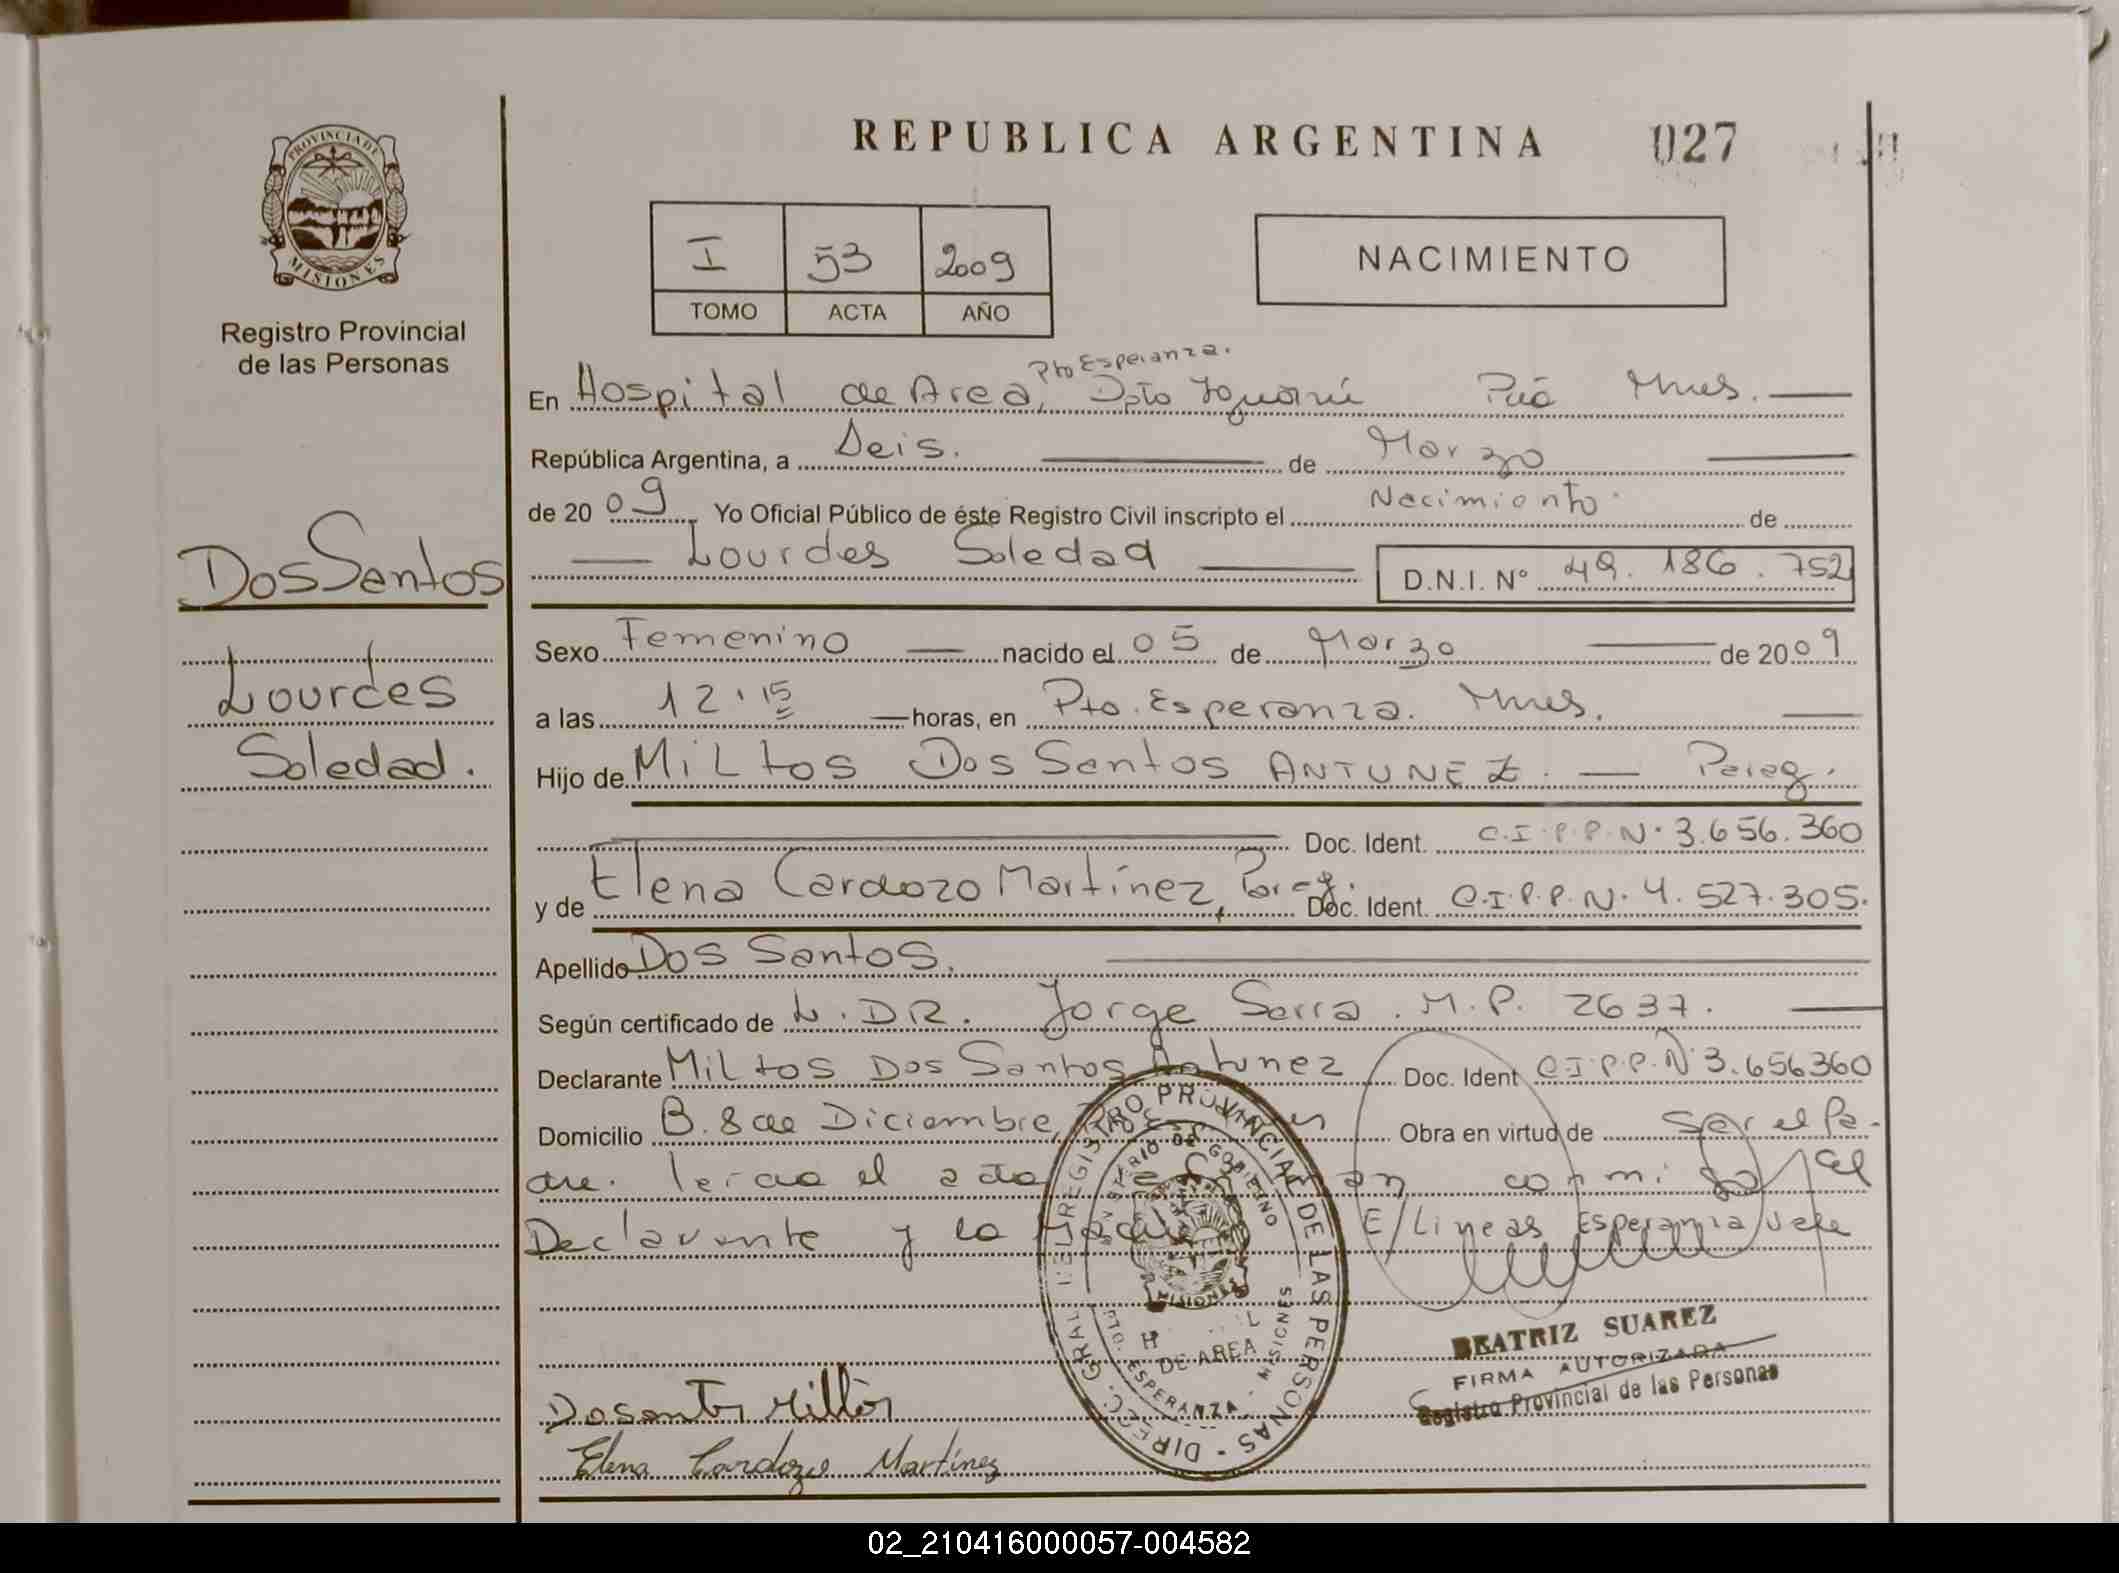 REPUBLICA ARGENTINA 027
PROVINCIA DE
MISIONES
Registro Provincial
de las Personas
I 53 2009
TOMO ACTA AÑO
NACIMIENTO
Pto Esperanza.
En Hospital de Area, Dpto Iguazú Pcia Mnes.
República Argentina, a Seis. de Marzo
de 2009 Yo Oficial Público de éste Registro Civil inscripto el Nacimiento de
Lourdes Soledad D.N.I. N° 49.186.752
Dos Santos
Lourdes
Soledad.
Sexo Femenino nacido el 05 de Marzo de 2009
a las 12:15 horas, en Pto. Esperanza. Mnes.
Hijo de Miltos Dos Santos ANTUNEZ. Parag.
Doc. Ident. C.I.P.P.N. 3.656.360
y de Elena Cardozo Martínez, Parag. Doc. Ident. C.I.P.P.N. 4.527.305.
Apellido Dos Santos.
Según certificado de L. DR. Jorge Serra. M.P. 2637.
Declarante Miltos Dos Santos Antunez Doc. Ident C.I.P.P.N 3.656360
Domicilio B. 8 de Diciembre, Obra en virtud de Ser el Pa-
dre. leida el acta conmigo el
Declarante y la E/Lineas Esperanza vale
DIREC. GRAL DEL REGISTRO PROVINCIAL DE LAS PERSONAS
MINISTERIO DE GOBIERNO
MISIONES
DE AREA
PTO. ESPERANZA - MISIONES
BEATRIZ SUAREZ
FIRMA AUTORIZADA
Registro Provincial de las Personas
Dosantos Miltos
Elena Cardozo Martínez
02_210416000057-004582